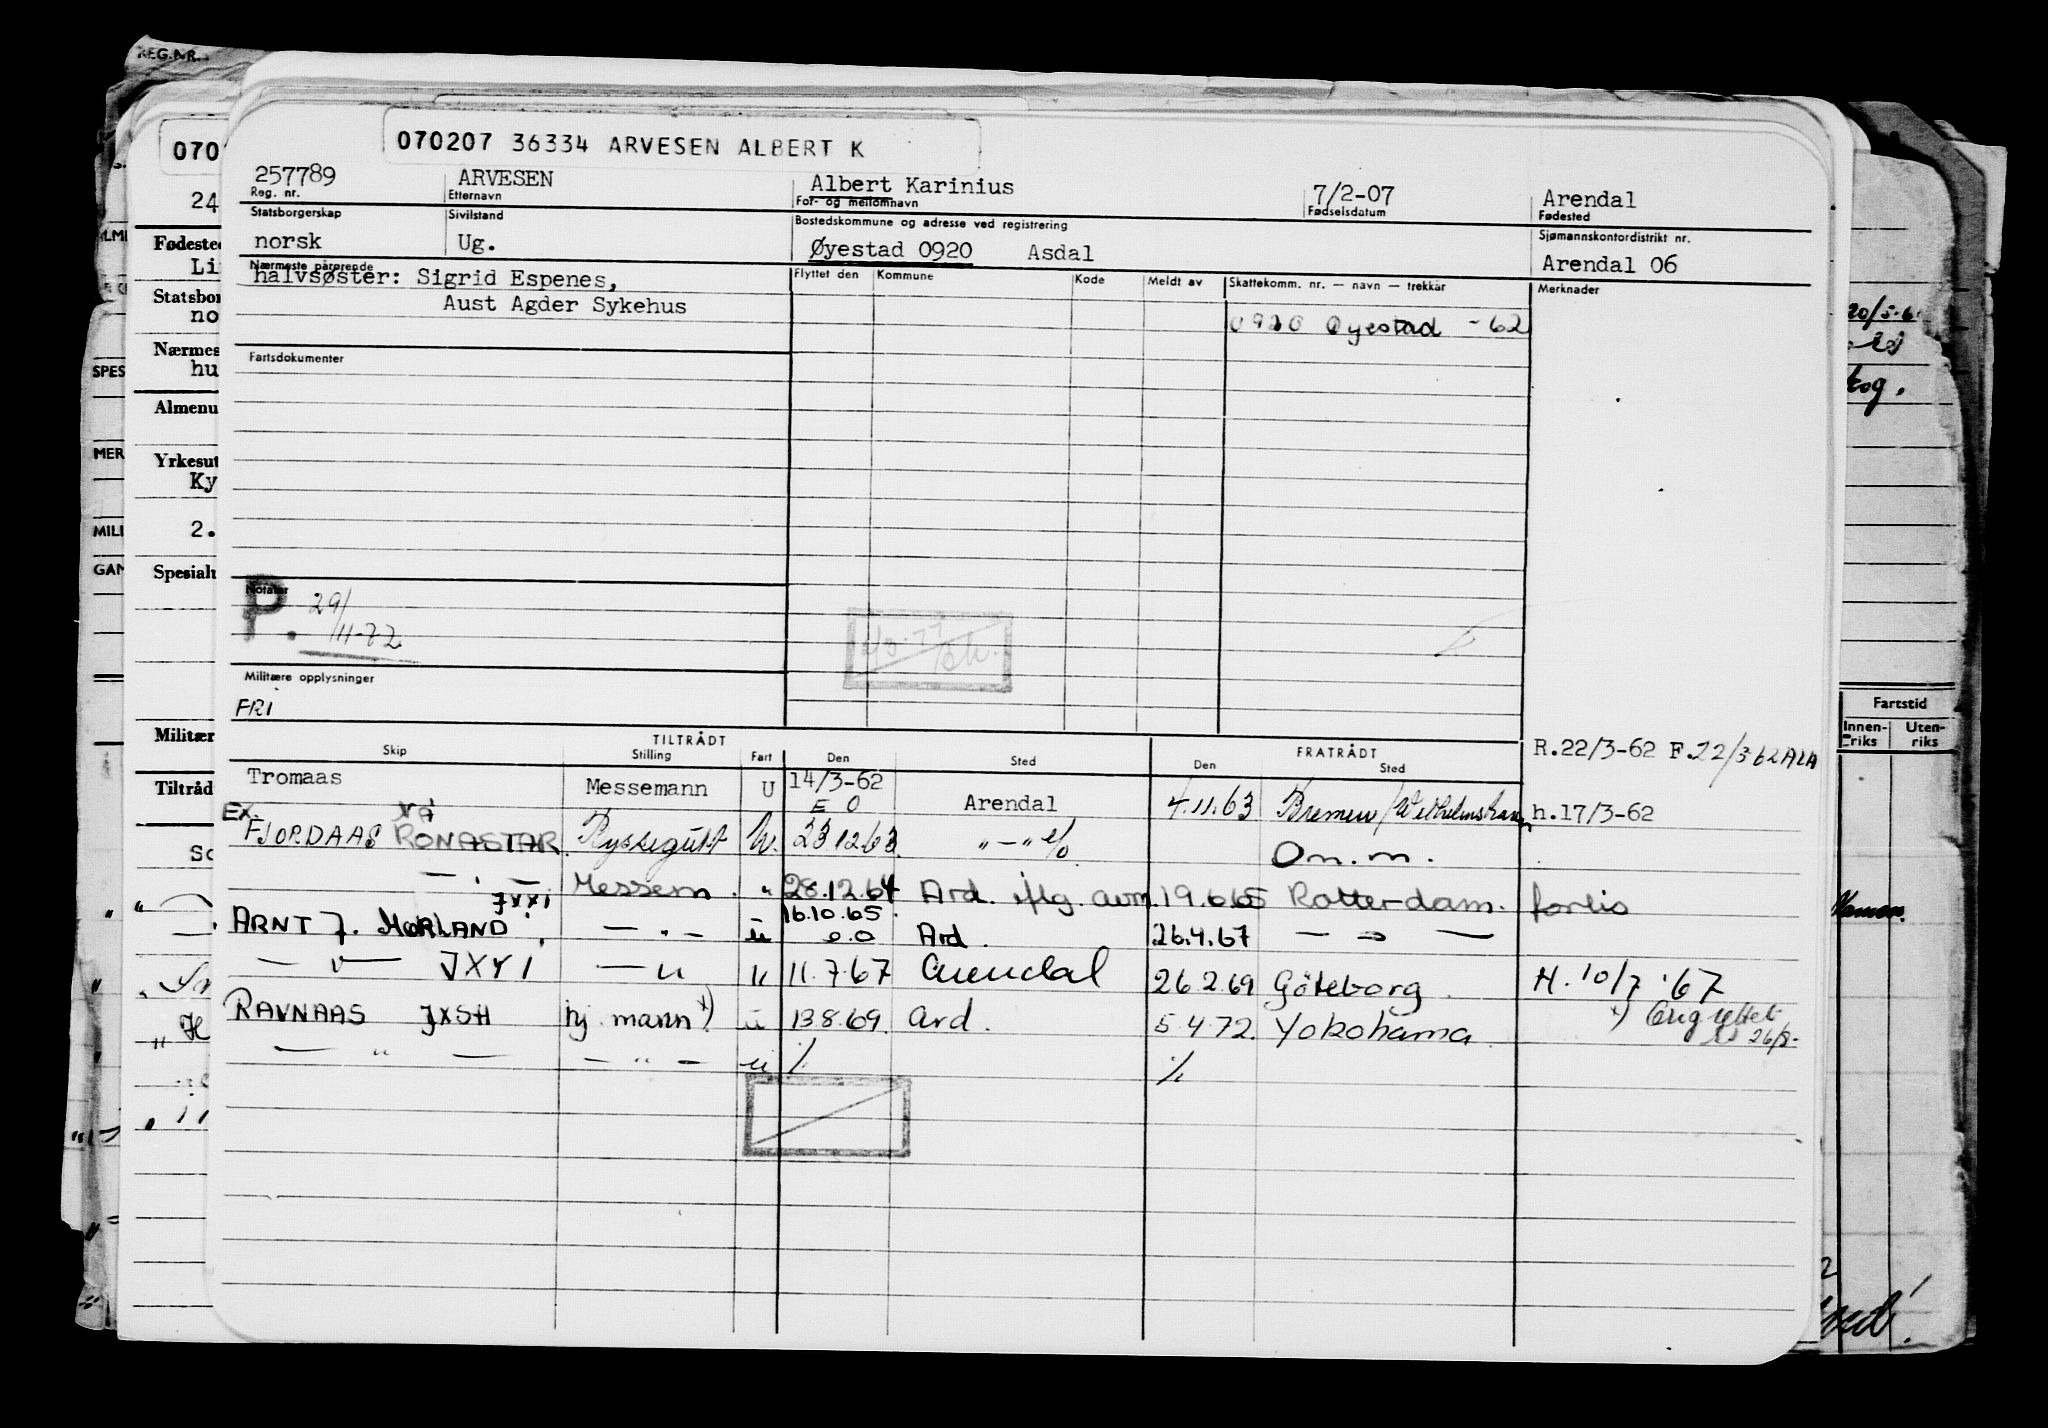 REG.NR.
070207 36334 ARVESEN ALBERT K
257789 ARVESEN Albert Karinius 7/2-07 Arendal
Reg. nr. Etternavn For- og mellomnavn Fødselsdatum Fødested
Statsborgerskap Sivilstand Bostedskommune og adresse ved registrering Sjømannskontordistrikt nr.
norsk Ug. Øyestad 0920 Asdal Arendal 06
Nærmeste pårørende Flyttet den Kommune Kode Meldt av Skattekomm. nr. — navn — trekkår Merknader
halvsøster: Sigrid Espenes,
Aust Agder Sykehus
0920 Øyestad -62
Fartsdokumenter
Notater
P. 29/11-72
Militære opplysninger
FRI
TILTRÅDT FRATRÅDT
Skip Stilling Fart Den Sted Den Sted
R.22/3-62 F.22/3 62 ALA
Tromaas Messemann U 14/3-62 Arendal 4.11.63 Bremen/Wilhelmshaven h.17/3-62
E O
EX. FJORDAAS RONASTAR Ryssegutt U. 23.12.63 " - " e/o On. m.
— " — Messem. " 28.12.64 Ard. iflg. avm. 19.6.65 Rotterdam. forlis
JXYI 16.10.65.
ARNT J. MØRLAND — " — u e.o Ard. 26.4.67 — " —
— " — JXYI — " u 11.7.67 Arendal 26.2.69 Göteborg. H. 10/7 '67
RAVNAAS JXSH hj. mann x) u 13.8.69. Ard. 5.4.72. Yokohama x)
26/8-
— " — — " — u ٪ ٪
070
24
Fødested
Li
Statsbor
no
Nærmes
hu
Almenu
Yrkesut
Ky
2.
Spesialu
Militær
Tiltråd
So
SPES
MER
MILI
GAM
20/5-6
Fartstid
Innen-riks Uten-riks